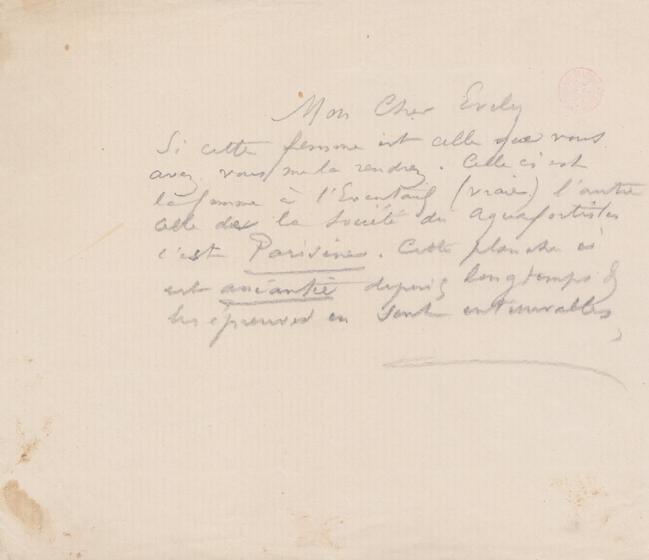 Mon Cher Evely
Si cette femme est celle que vous
avez vous me la rendrez. Celle ci est
la femme à l'Eventail (vraie) l'autre
celle de la Société des aquafortistes
c'est Parisine. Cette planche ci
est anéantie depuis longtemps &
les épreuves en sont introuvables